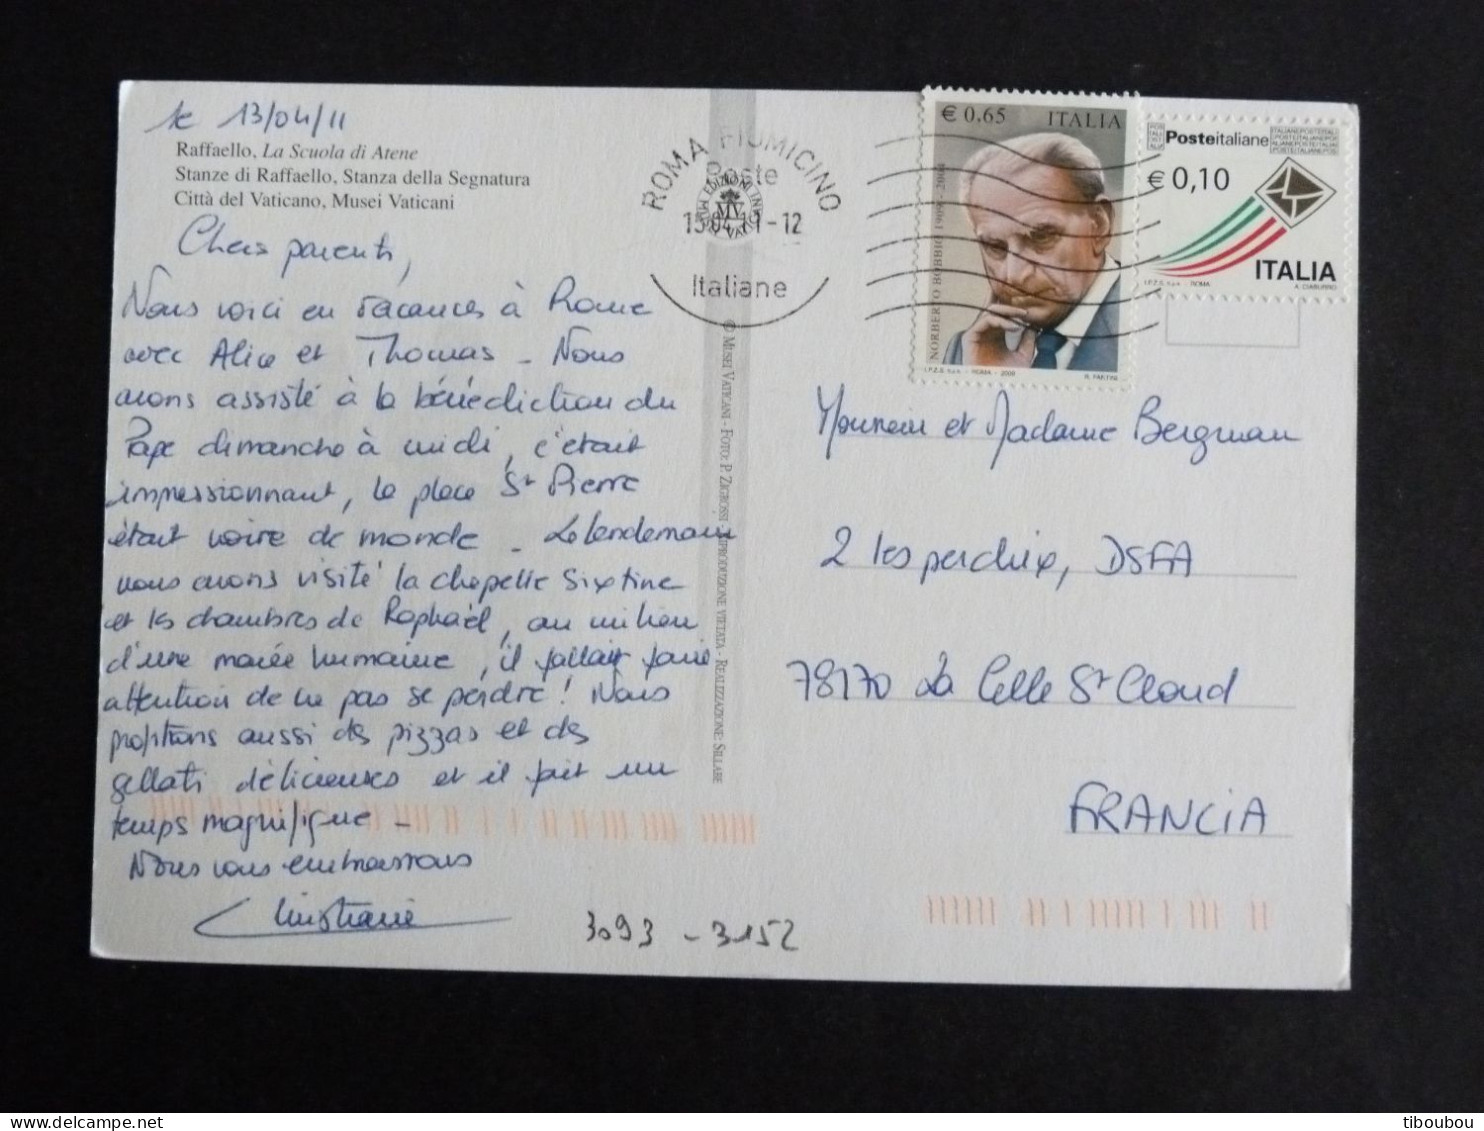 le 13/04/11
Raffaello, La Scuola di Atene
Stanze di Raffaello, Stanza della Segnatura
Città del Vaticano, Musei Vaticani
Chers parents,
Nous voici en vacances à Rome
avec Alice et Thomas - Nous
avons assisté à la bénédiction du
Pape dimanche à midi, c'était
impressionnant, la place St Pierre
était noire de monde - Le lendemain
nous avons visité la chapelle Sixtine
et les chambres de Raphaël, au milieu
d'une marée humaine, il fallait faire
attention de ne pas se perdre ! Nous
profitons aussi des pizzas et des
gellati délicieuses et il fait un
temps magnifique -
Nous vous embrassons
Christiane
3093 - 3152
© MUSEI VATICANI - FOTO: P. ZIGROSSI - RIPRODUZIONE VIETATA - REALIZZAZIONE: SILLABE
ROMA FIUMICINO
Poste
13.04.11-12
Italiane
€ 0.65 ITALIA
NORBERTO BOBBIO 1909-2004
I.P.Z.S. S.p.A. - ROMA - 2009
Posteitaliane
€ 0,10
ITALIA
I.P.Z.S. S.p.A. - ROMA
A. CIABURRO
Monsieur et Madame Bergman
2 les perdrix, DSFA
78170 La Celle St Cloud
FRANCIA
tiboubou